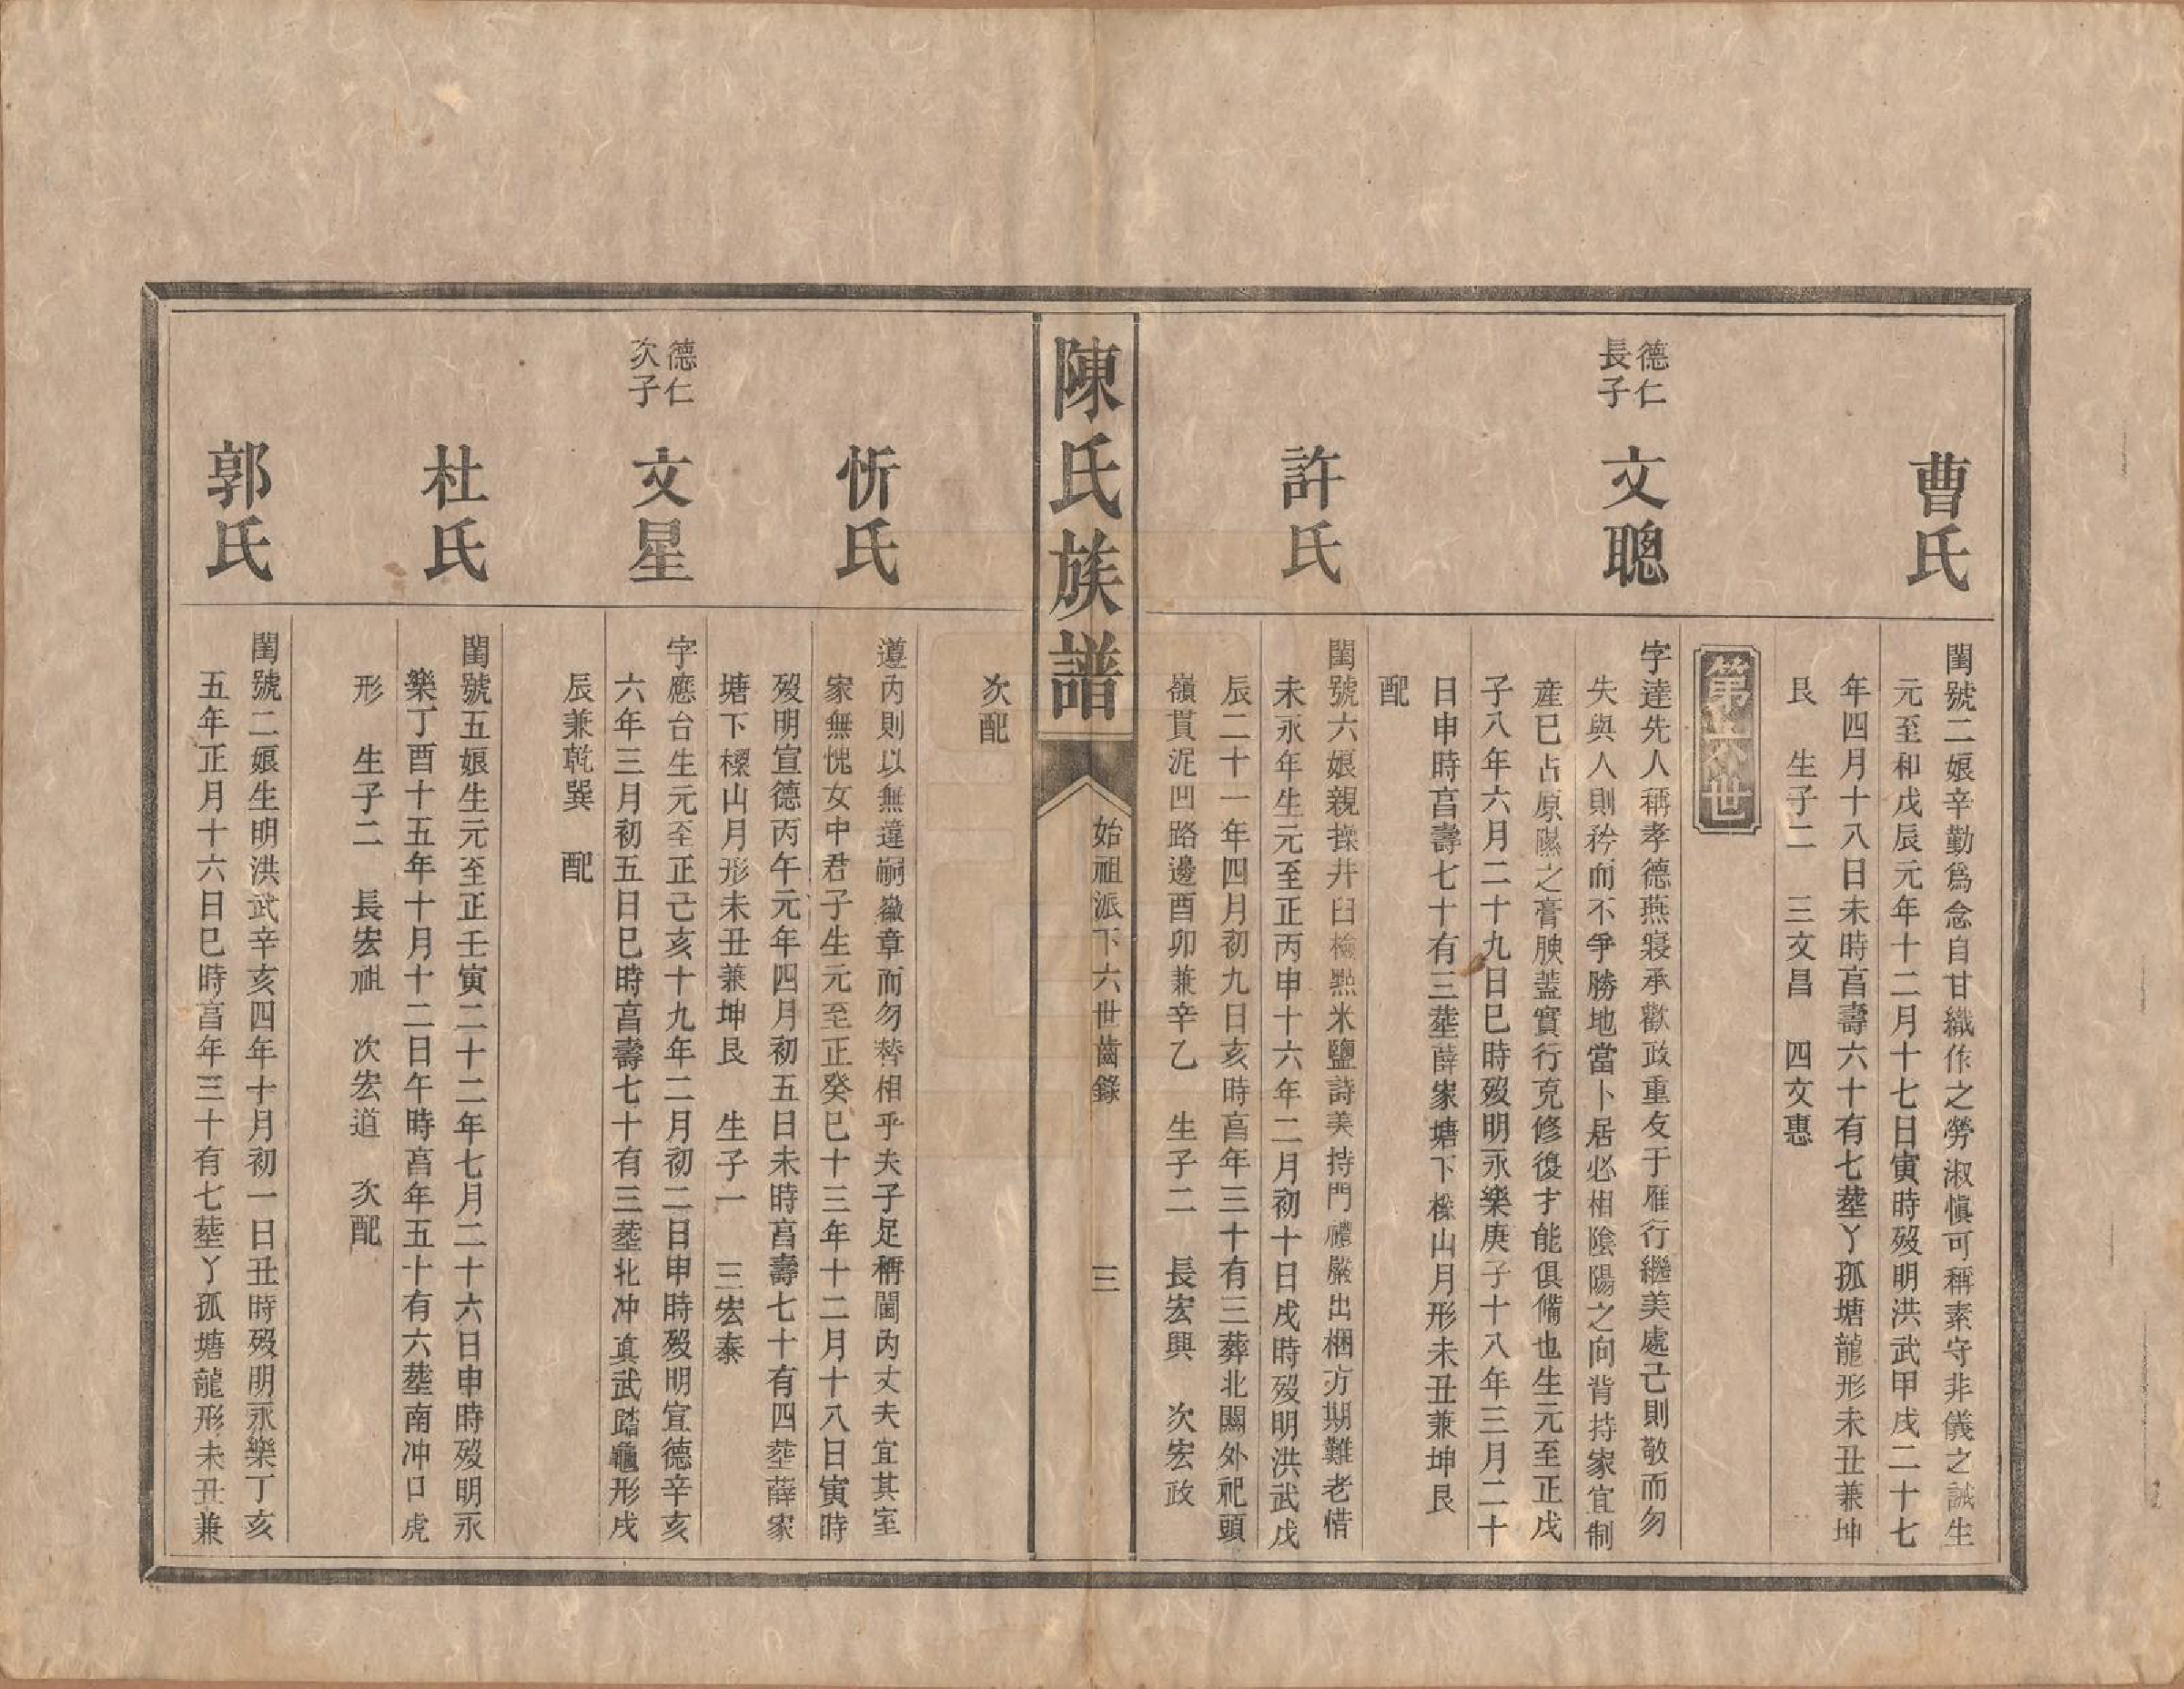 曹氏
閨號二娘辛勤爲念自甘織作之勞淑愼可稱素守非儀之誡生
元至和戊辰元年十二月十七日寅時歿明洪武甲戌二十七
年四月十八日未時亯壽六十有七塟丫孤塘龍形未丑兼坤
艮 生子二 三文昌 四文惠
第六世
德仁
長子
文聰
字達先人稱孝德燕寢承歡政重友于雁行繼美處己則敬而勿
失與人則矜而不爭勝地當卜居必相陰陽之向背持家宜制
産已占原隰之膏腴蓋實行克修復才能俱備也生元至正戊
子八年六月二十九日巳時歿明永樂庚子十八年三月二十
日申時亯壽七十有三塟薛家塘下檪山月形未丑兼坤艮
配
許氏
閨號六娘親操井臼檢㸃米鹽詩美持門禮嚴出梱方期難老惜
未永年生元至正丙申十六年二月初十日戌時歿明洪武戊
辰二十一年四月初九日亥時亯年三十有三葬北關外祀頭
嶺貫泥凹路邊酉卯兼辛乙 生子二 長宏興 次宏政
陳氏族譜
始祖派下六世齒錄
三
次配
忻氏
遵內則以無違嗣徽章而勿替相乎夫子足稱閫內丈夫宜其室
家無愧女中君子生元至正癸巳十三年十二月十八日寅時
歿明宣德丙午元年四月初五日未時亯壽七十有四塟薛家
塘下檪山月形未丑兼坤艮 生子一 三宏泰
德仁
次子
文星
字應台生元至正己亥十九年二月初二日申時歿明宣德辛亥
六年三月初五日巳時亯壽七十有三塟北冲真武踏龜形戌
辰兼乾巽 配
杜氏
閨號五娘生元至正壬寅二十二年七月二十六日申時歿明永
樂丁酉十五年十月十二日午時亯年五十有六塟南冲口虎
形 生子二 長宏祖 次宏道 次配
郭氏
閨號二娘生明洪武辛亥四年十月初一日丑時歿明永樂丁亥
五年正月十六日巳時亯年三十有七塟丫孤塘龍形未丑兼